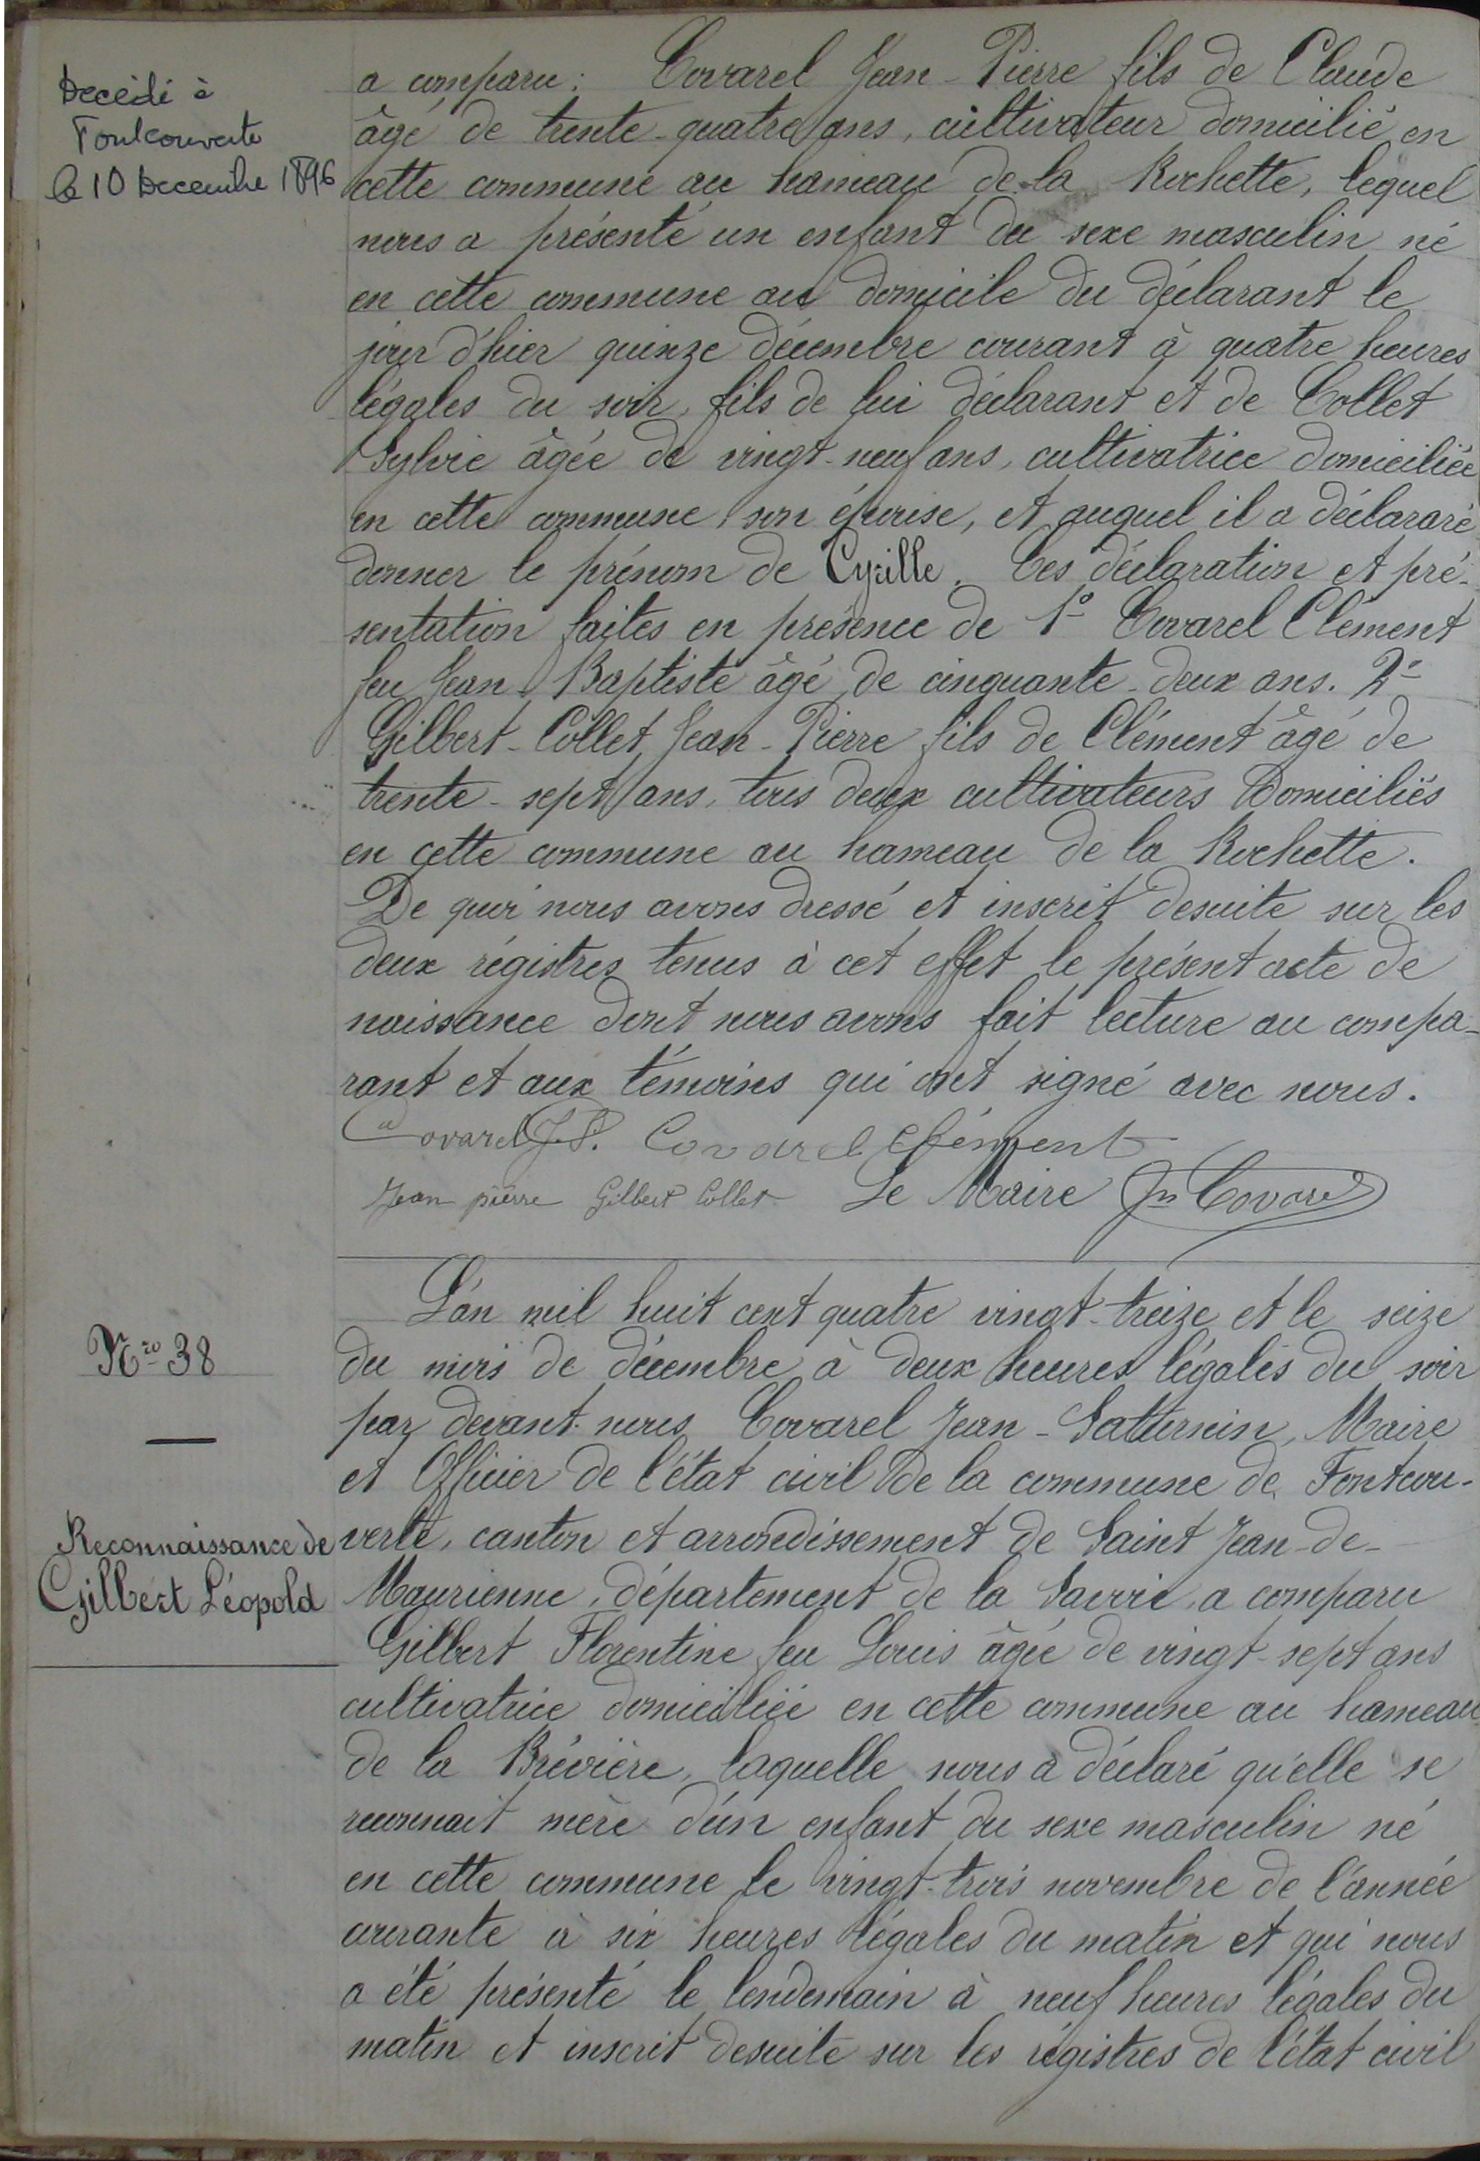 Decédé à
Fontcouverte
le 10 Decembre 1896
a comparu: Covarel Jean-Pierre fils de Claude
âgé de trente-quatre ans, cultivateur domicilié en
cette commune au hameau de la Rochette, lequel
nous a présenté un enfant du sexe masculin né
en cette commune au domicile du déclarant le
jour d'hier quinze décembre courant à quatre heures
légales du soir, fils de lui déclarant et de Collet
Sylvie âgée de vingt-neuf ans, cultivatrice domiciliée
en cette commune, son épouse, et auquel il a déclararé
donner le prénom de Cyrille. Ces déclaration et pré-
sentation faites en présence de 1° Covarel Clément
feu Jean-Baptiste âgé de cinquante-deux ans. 2°
Gilbert-Collet Jean-Pierre fils de Clément âgé de
trente-sept ans, tous deux cultivateurs Domiciliés
en cette commune au hameau de la Rochette.
De quoi nous avons dressé et inscrit desuite sur les
deux régistres tenus à cet effet le présent acte de
naissance dont nous avons fait lecture au compa-
rant et aux témoins qui ont signé avec nous.
Covarel J.P. Covarel Clément
Jean pierre Gilbert Collet Le Maire Jn Covarel
Nro 38
Reconnaissance de
Gilbert Léopold
L'an mil huit cent quatre vingt-treize et le seize
du mois de décembre à deux heures légales du soir
par devant nous Covarel Jean-Saturnin, Maire
et Officier de l'état civil de la commune de Fontcou-
verte, canton et arrondissement de Saint Jean-de-
Maurienne, département de la Savoie, a comparu
Gilbert Florentine feu Louis âgée de vingt-sept ans
cultivatrice domiciliée en cette commune au hameau
de la Brévière, laquelle nous a déclaré qu'elle se
reconnait mère d'un enfant du sexe masculin né
en cette commune le vingt-trois novembre de l'année
courante à six heures légales du matin et qui nous
a été présenté le lendemain à neuf heures légales du
matin et inscrit desuite sur les régistres de l'état civil